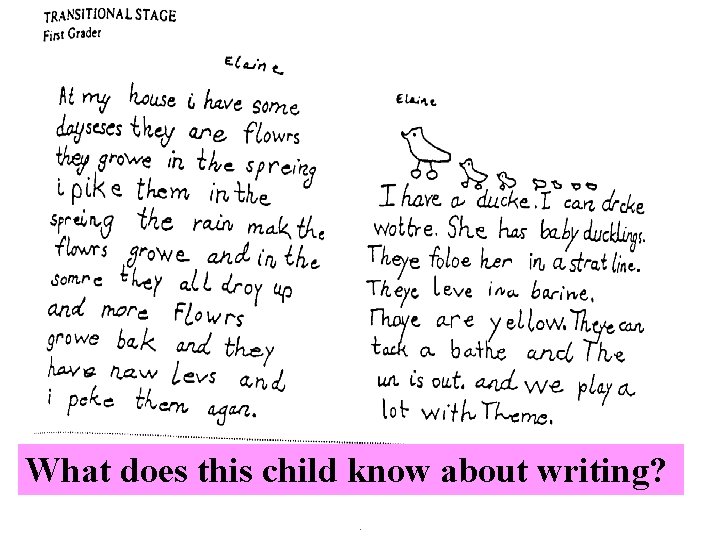 TRANSITIONAL STAGE
First Grader
Elaine
At my house i have some
dayseses they are flowrs
they growe in the spreing
i pike them in the
spreing the rain mak the
flowrs growe and in the
somre they all droy up
and more flowrs
growe bak and they
have naw levs and
i peke them agan.
Elaine
I have a ducke. I can drcke
wottre. She has baby ducklings.
Theye foloe her in a strat line.
Theye leve in a barine.
Thaye are yellow. Theye can
tack a bathe and The
un is out. and we play a
lot with Theme.
What does this child know about writing?